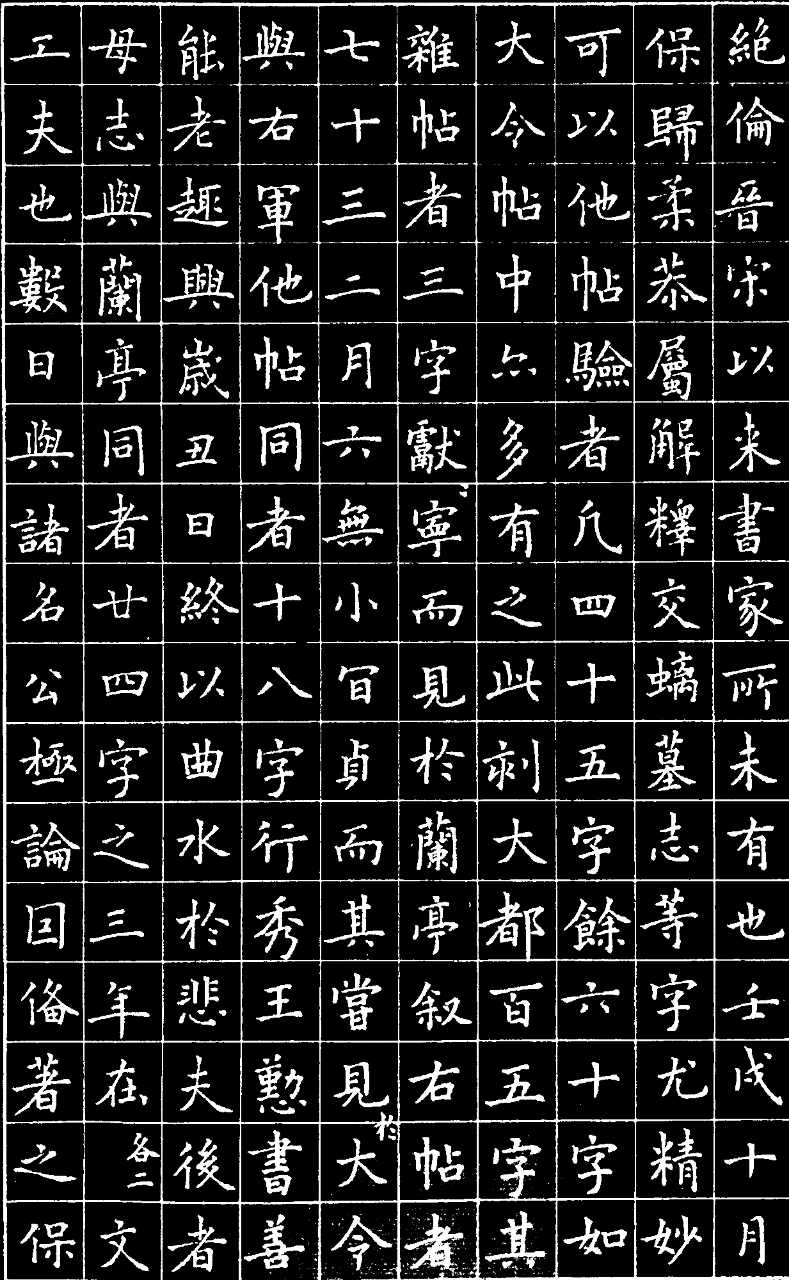 絶倫晉宋以来書家所未有也壬戌十月
保歸柔恭屬解釋交螭墓志等字尤精妙
可以他帖驗者凢四十五字餘六十字如
大令帖中亦多有之此刻大都百五字其
雜帖者三字獻寧而見於蘭亭叙右帖者
七十三二月六無小冝貞而其嘗見於大令
與右軍他帖同者十八字行秀王懃書善
能老趣興歲丑日終以曲水於悲夫後者
母志與蘭亭同者廿四字之三年在各二文
工夫也數日與諸名公極論回俻著之保